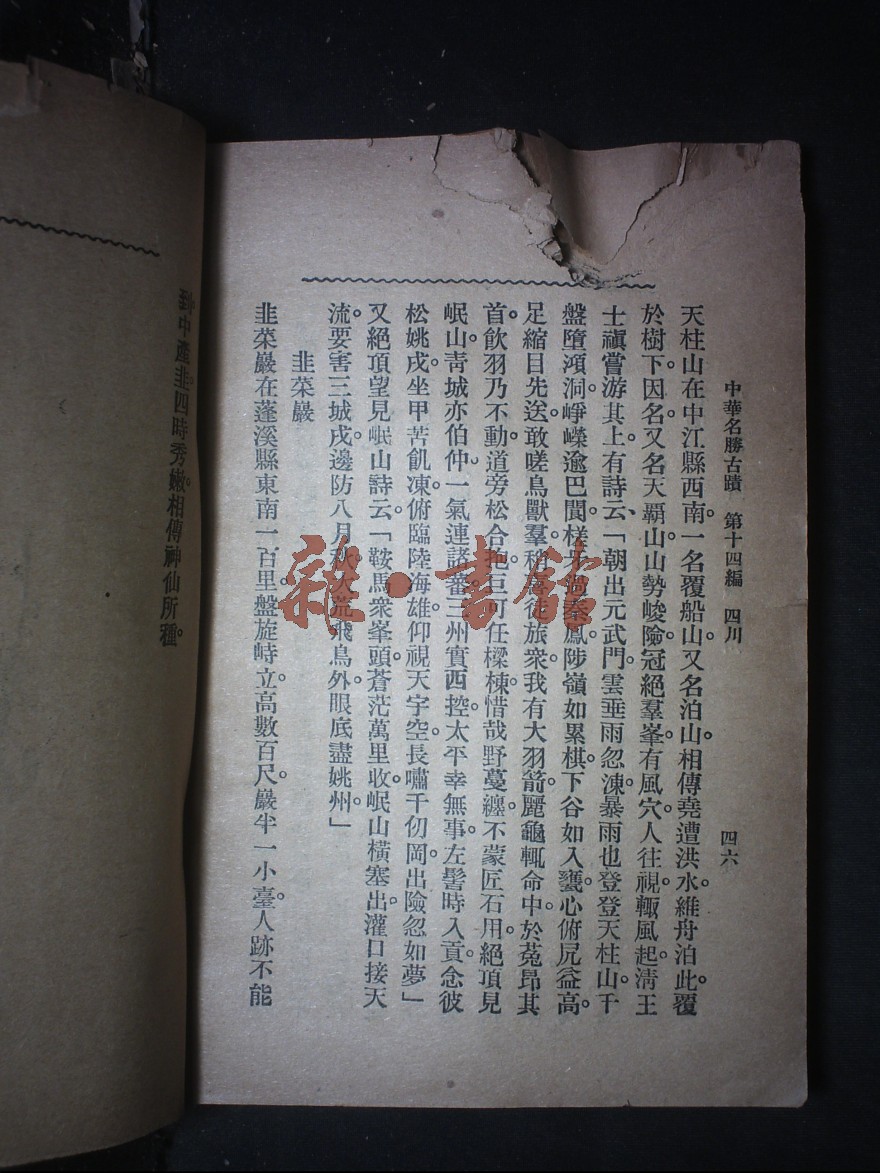 中華名勝古蹟　第十四編　四川　四六
天柱山在中江縣西南。一名覆船山。又名泊山。相傳堯遭洪水。維舟泊此。覆
於樹下。因名。又名天霸山。山勢峻險。冠絕羣峯。有風穴。人往視。輒風起。清王
士禛嘗游其上。有詩云。「朝出元武門。雲垂雨忽湅。暴雨也登登天柱山。千
盤墮澒洞。崢嶸逾巴閬。樣過秦鳳。陟嶺如累棋。下谷如入甕。心俯尻益高。
足縮目先送。敢嗟鳥獸羣。稍喜徒旅衆。我有大羽箭。麗龜輒命中。於菟昂其
首。飲羽乃不動。道旁松合抱。巨可任樑棟。惜哉野蔓纏。不蒙匠石用。絕頂見
岷山。靑城亦伯仲。一氣連諸蕃。三州實西控。太平幸無事。左髻時入貢。念彼
松姚戍。坐甲苦飢凍。俯臨陸海雄。仰視天宇空。長嘯千仞岡。出險忽如夢」
又絕頂望見岷山詩云。「鞍馬衆峯頭。蒼茫萬里收。岷山橫塞出。灌口接天
流。要害三城戍。邊防八月秋。大荒飛鳥外。眼底盡姚州。」
韭菜巖
韭菜巖在蓬溪縣東南一百里。盤旋峙立。高數百尺。巖半一小臺。人跡不能
到。中產韭。四時秀嫩。相傳神仙所種。
雜·書館